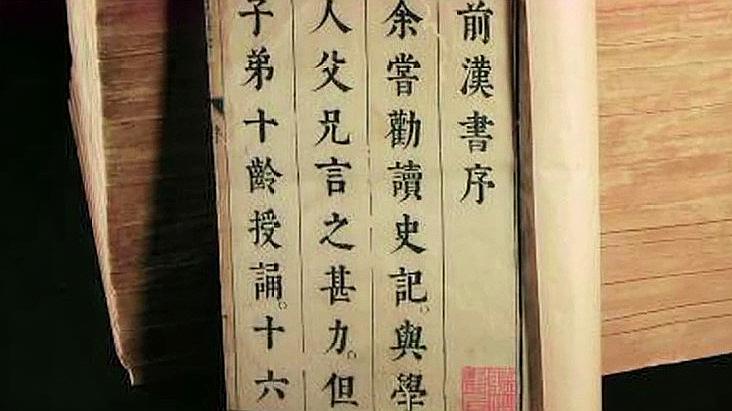 前漢書序
余嘗勸讀史記。與學
人父兄言之甚力。但
子弟十齡授誦。十六